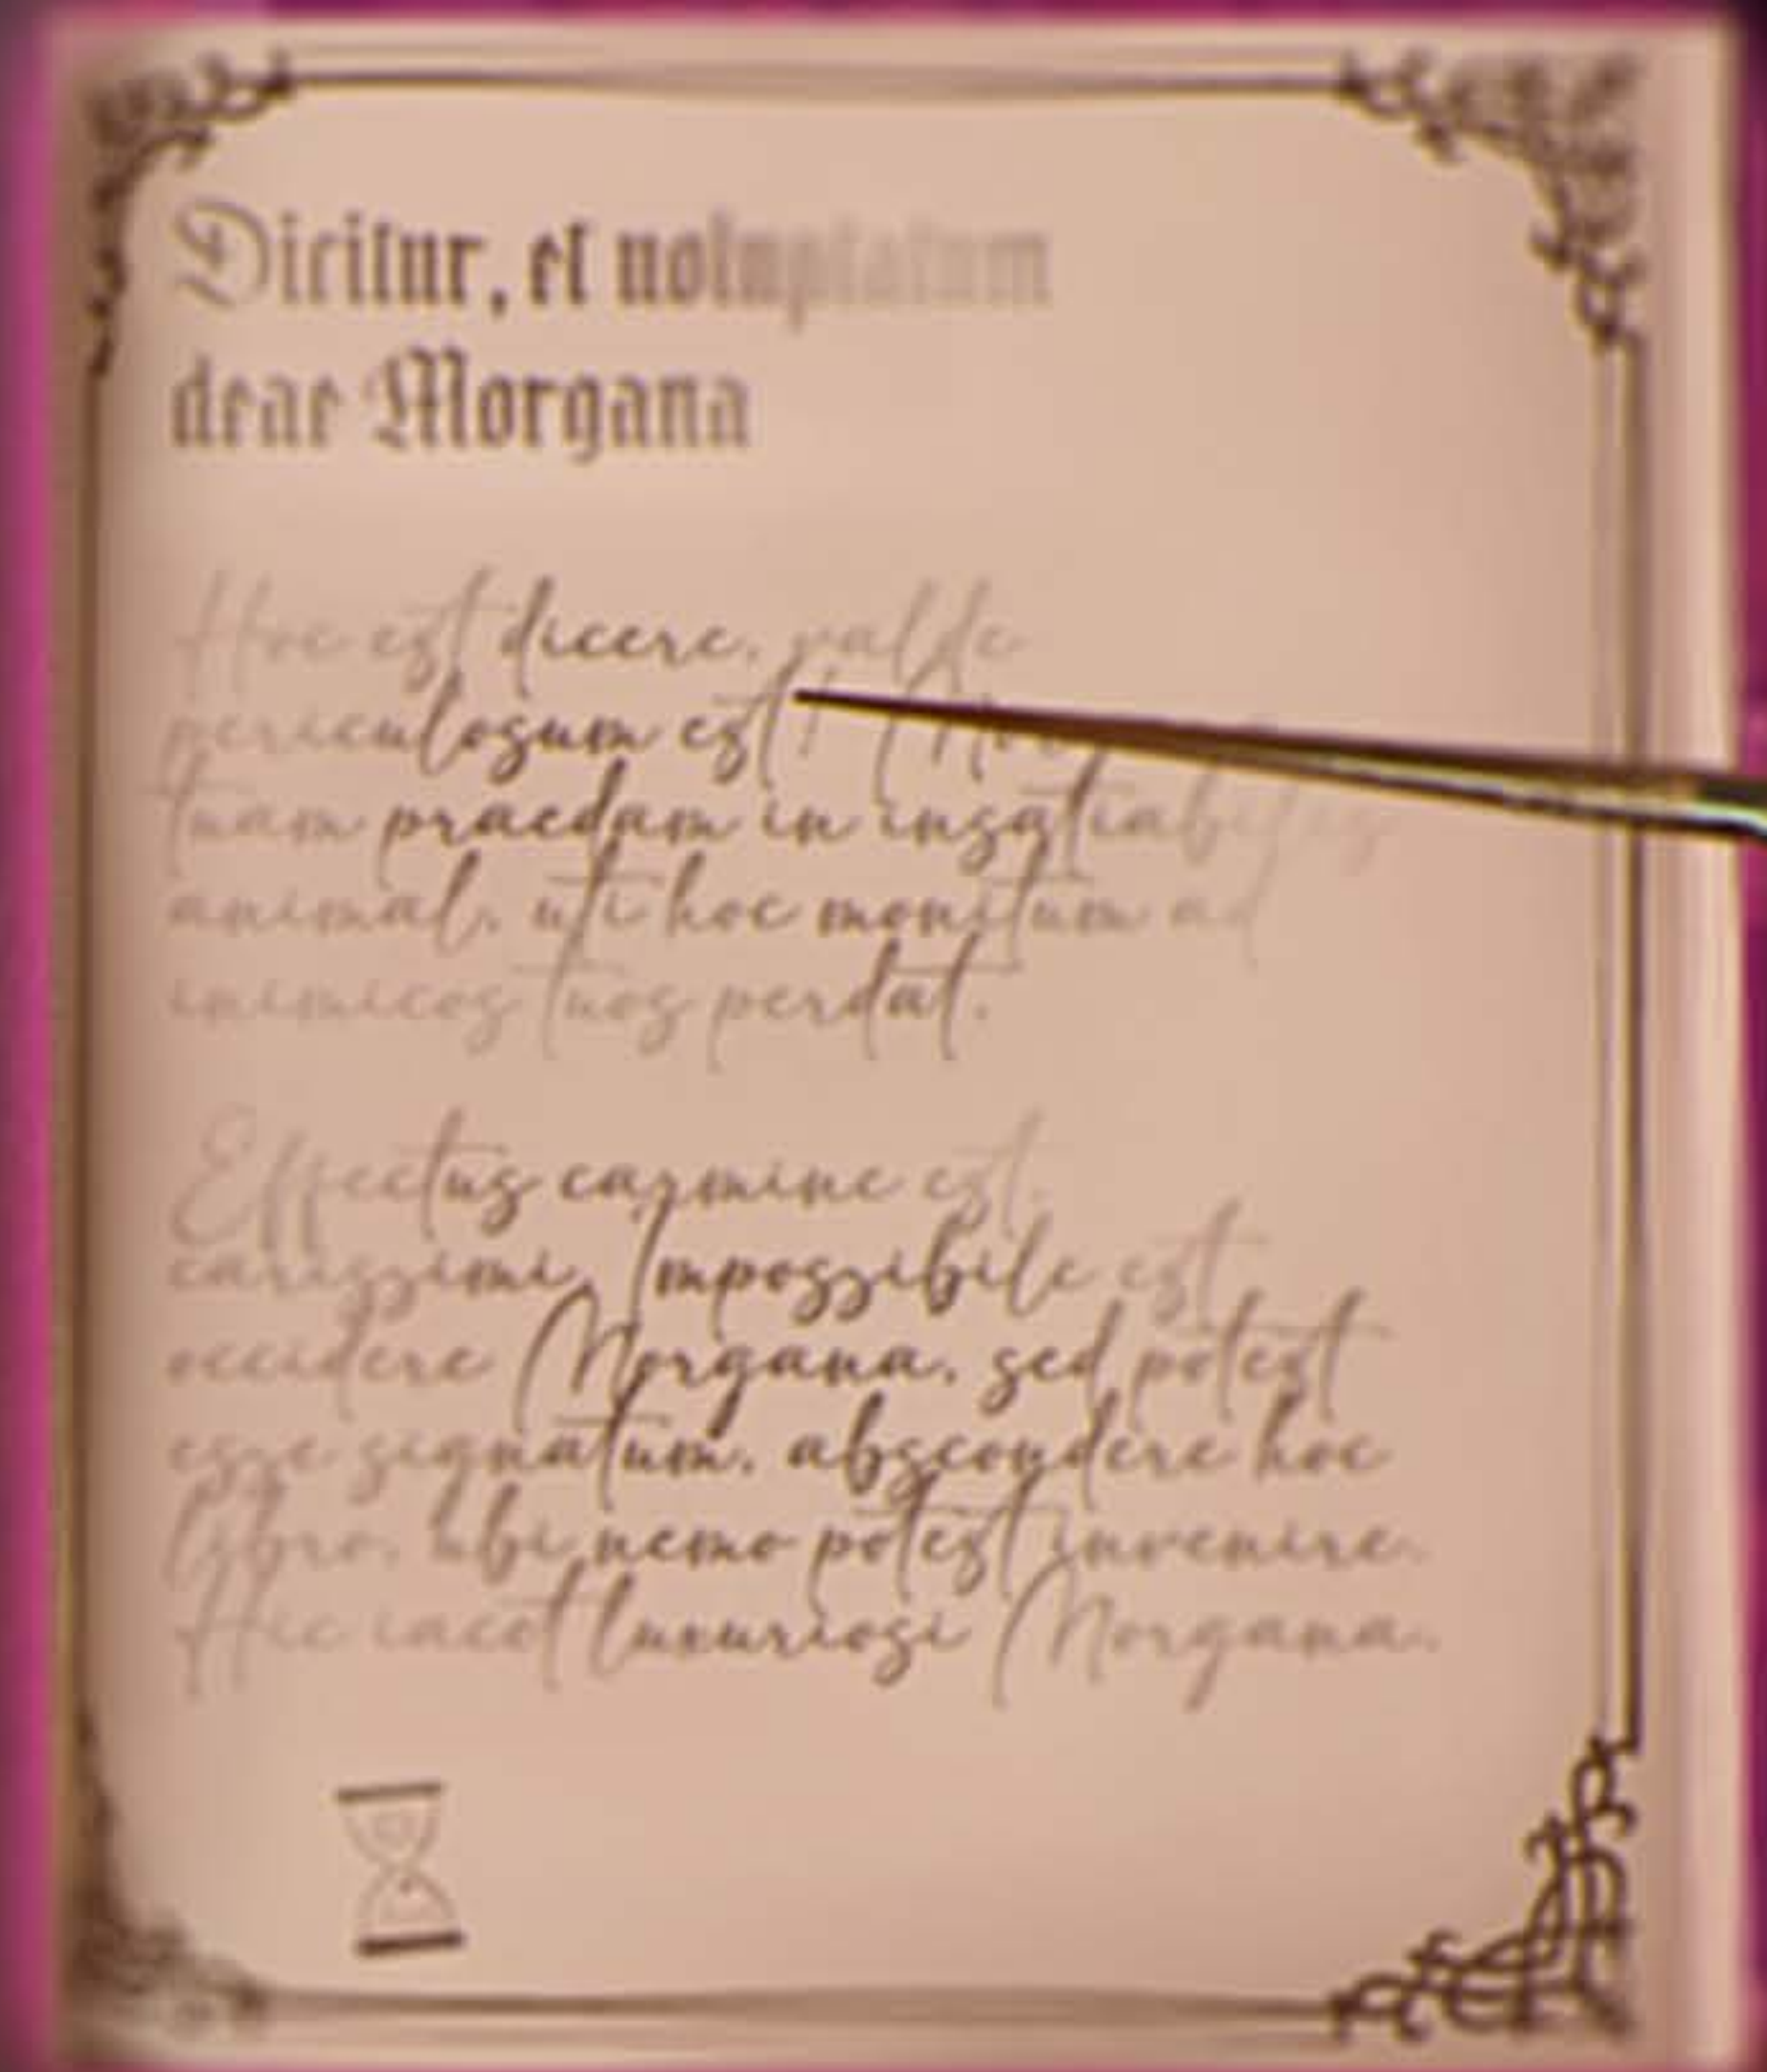 Dicitur, et voluptatum
dear Morgana
Hoc est dicere, valde
periculosum est!
tuam praedam in insatiabiles
animal, uti hoc monitum ad
inimicos tuos perdat.
Effectus carmine est,
carissimi, Impossibile est
occidere Morgana, sed potest
esse signatum, abscondere hoc
libro, ubi nemo potest invenire.
Hic iacet luxuriosi Morgana.